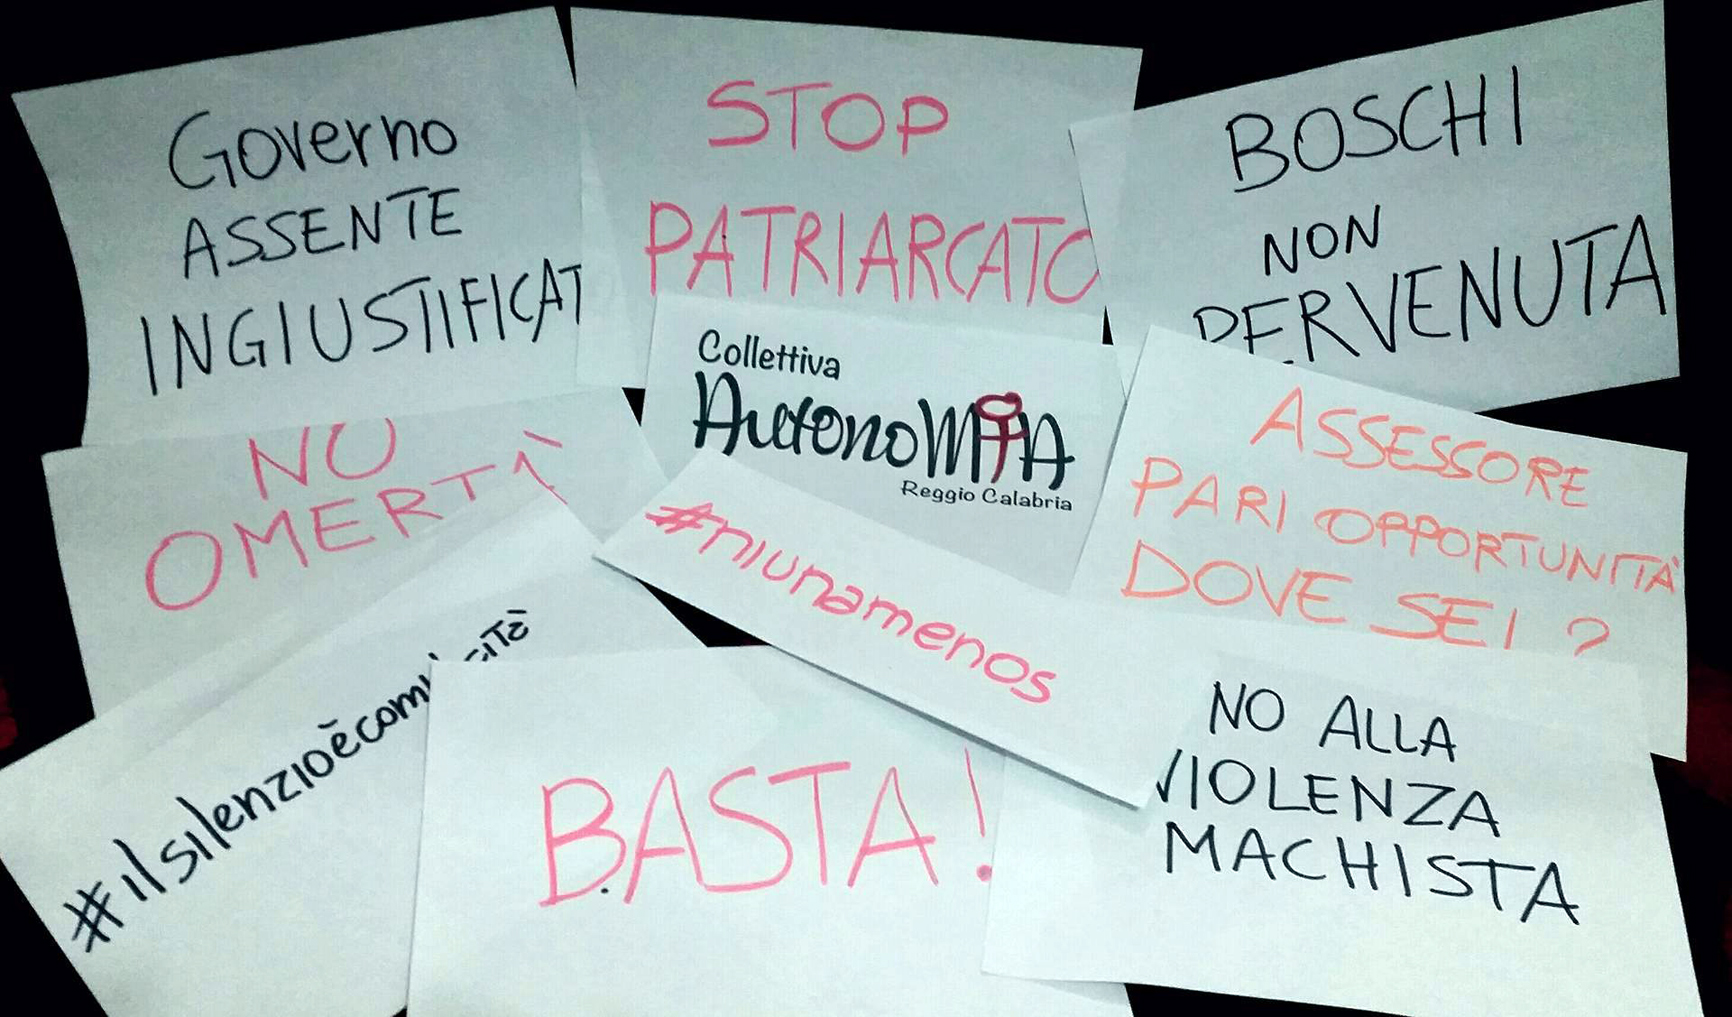 Governo
ASSENTE
INGIUSTIFICAT
STOP
PATRIARCATO
BOSCHI
NON
PERVENUTA
Collettiva
AutonoMIA
Reggio Calabria
NO
OMERTÀ
#niunamenos
ASSESSORE
PARI OPPORTUNITÀ
DOVE SEI ?
#ilsilenzioècomplicità
BASTA!
NO ALLA
VIOLENZA
MACHISTA